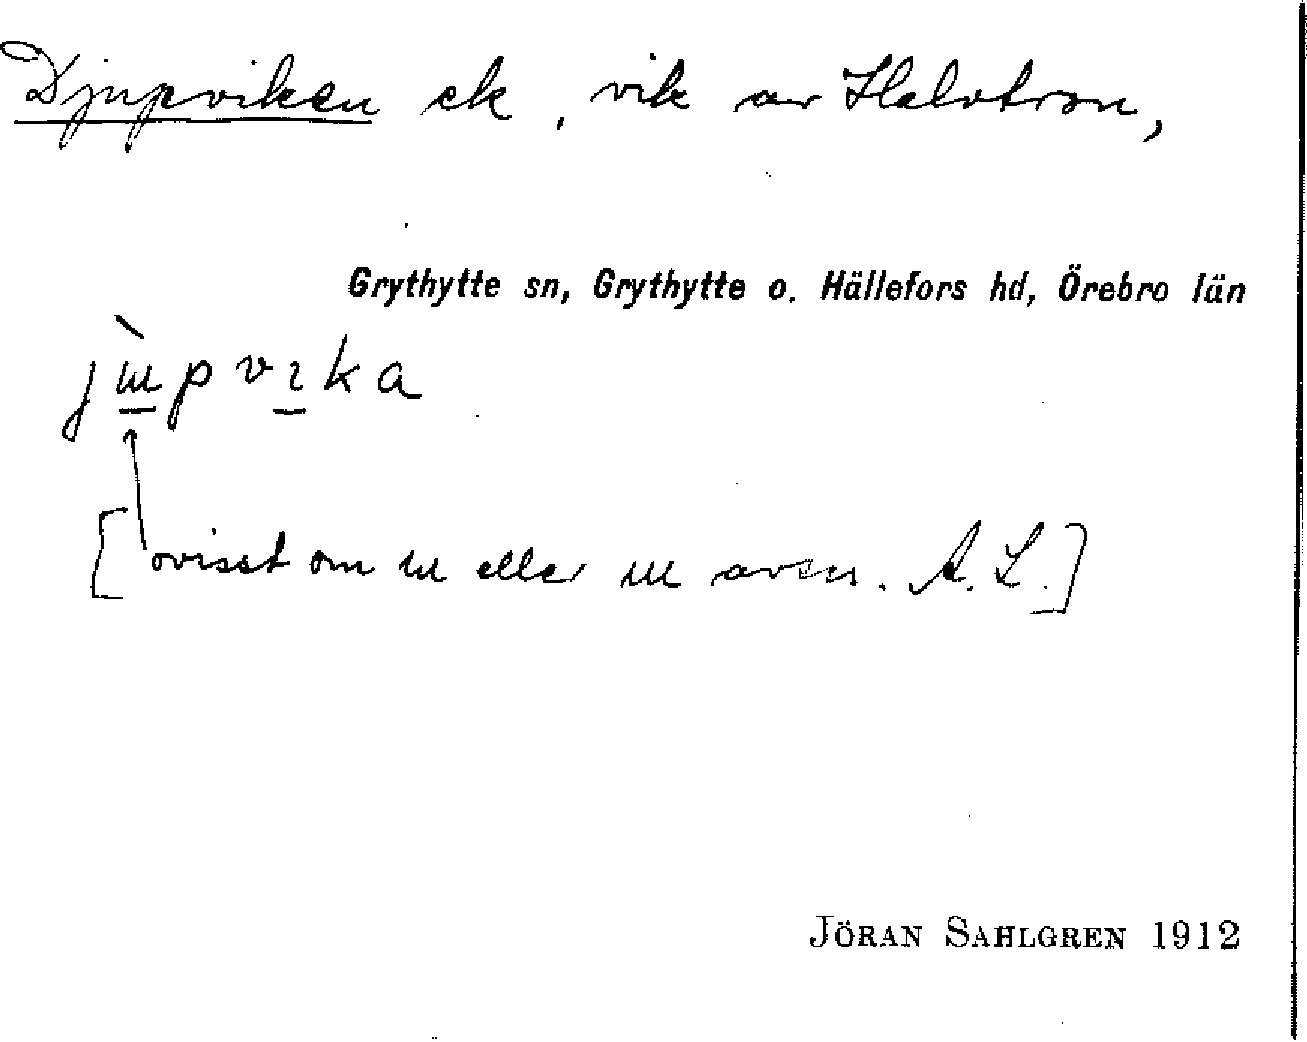 Djupviken ek, vik av Halvtron,
Grythytte sn, Grythytte o. Hällefors hd, Örebro län
jɯ̲̀pvɪ̲ka
[ovisst om ɯ eller ɯ avsen. A. L.]
JÖRAN SAHLGREN 1912